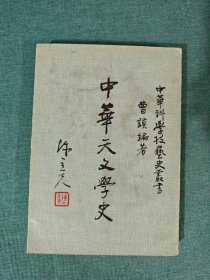 中華科學技藝史叢書
曹謨編著
中華天文學史
陳立夫